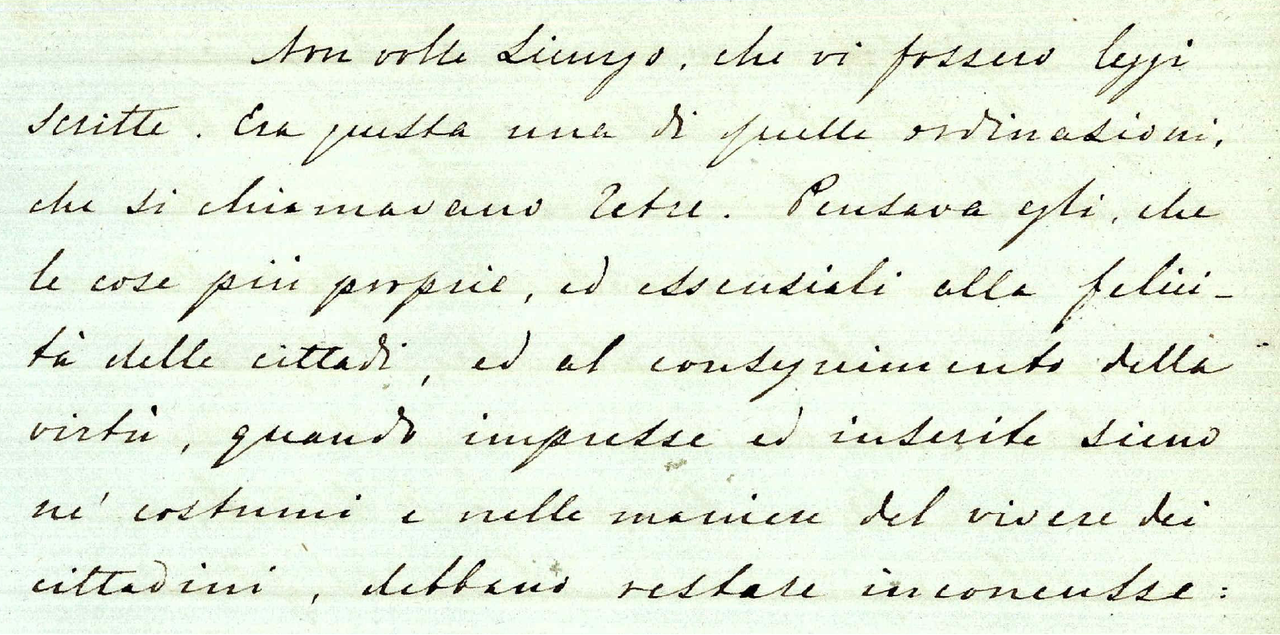 Non volle Licurgo, che vi fossero leggi
scritte. Era questa una di quelle ordinazioni,
che si chiamavano Retre. Pensava egli, che
le cose più proprie, ed essenziali alla felici-
tà delle cittadi, ed al conseguimento della
virtù, quando impresse ed inserite sieno
ne' costumi e nelle maniere del vivere dei
cittadini, debbano restare inconcusse: